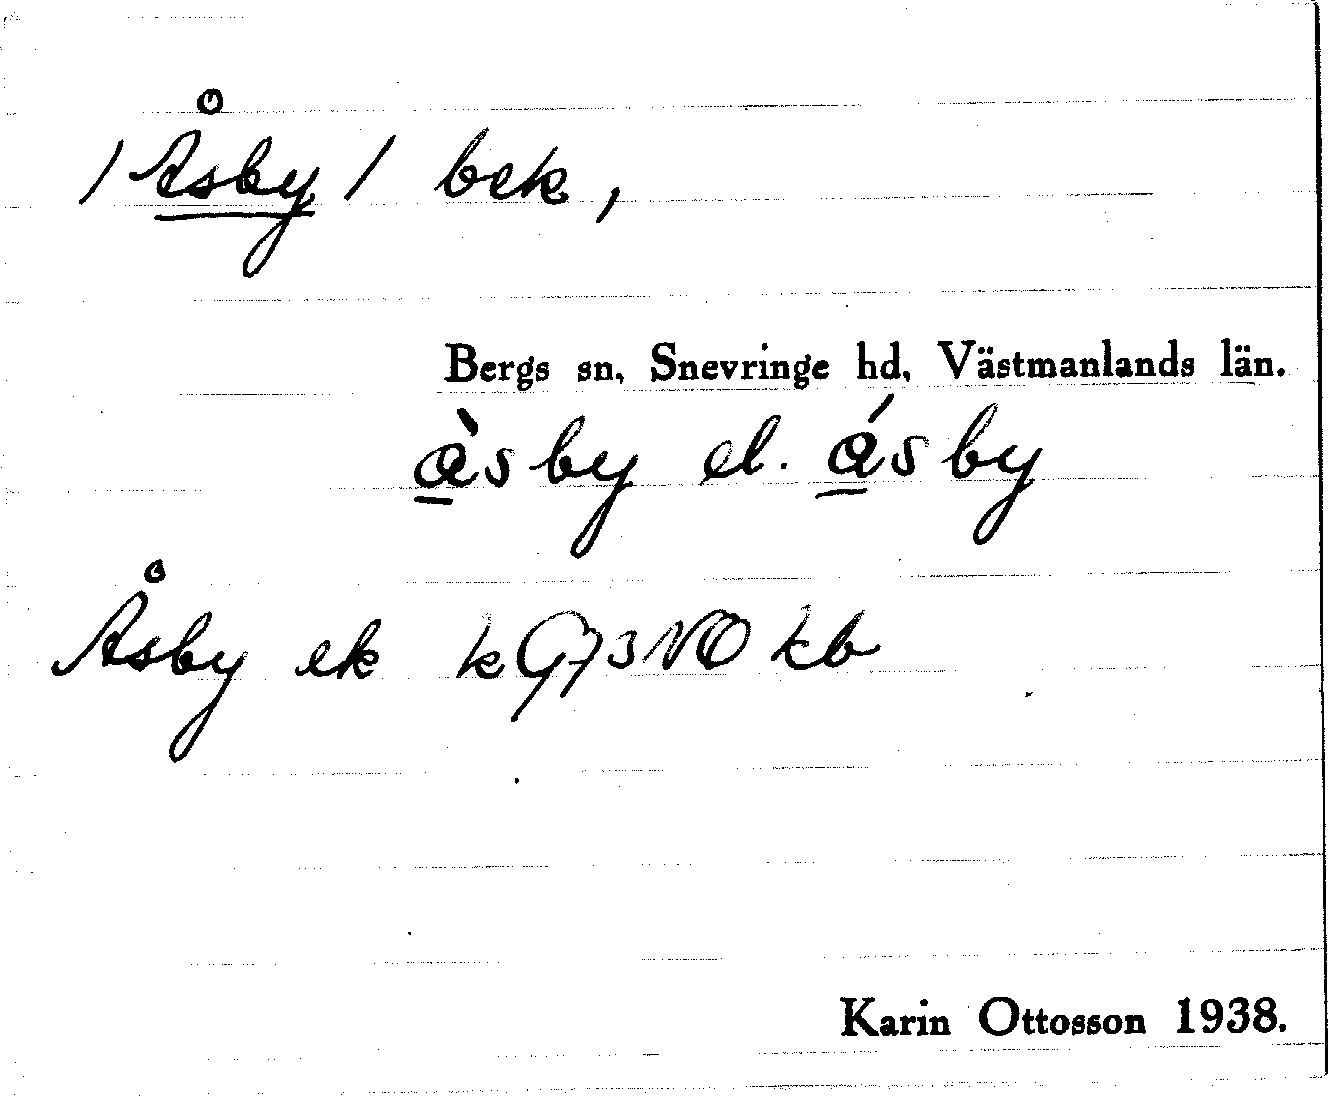 /Åsby/ bek,
Bergs sn, Snevringe hd, Västmanlands län.
à̲sby el. á̲sby
Åsby ek k G73NO kb
Karin Ottosson 1938.